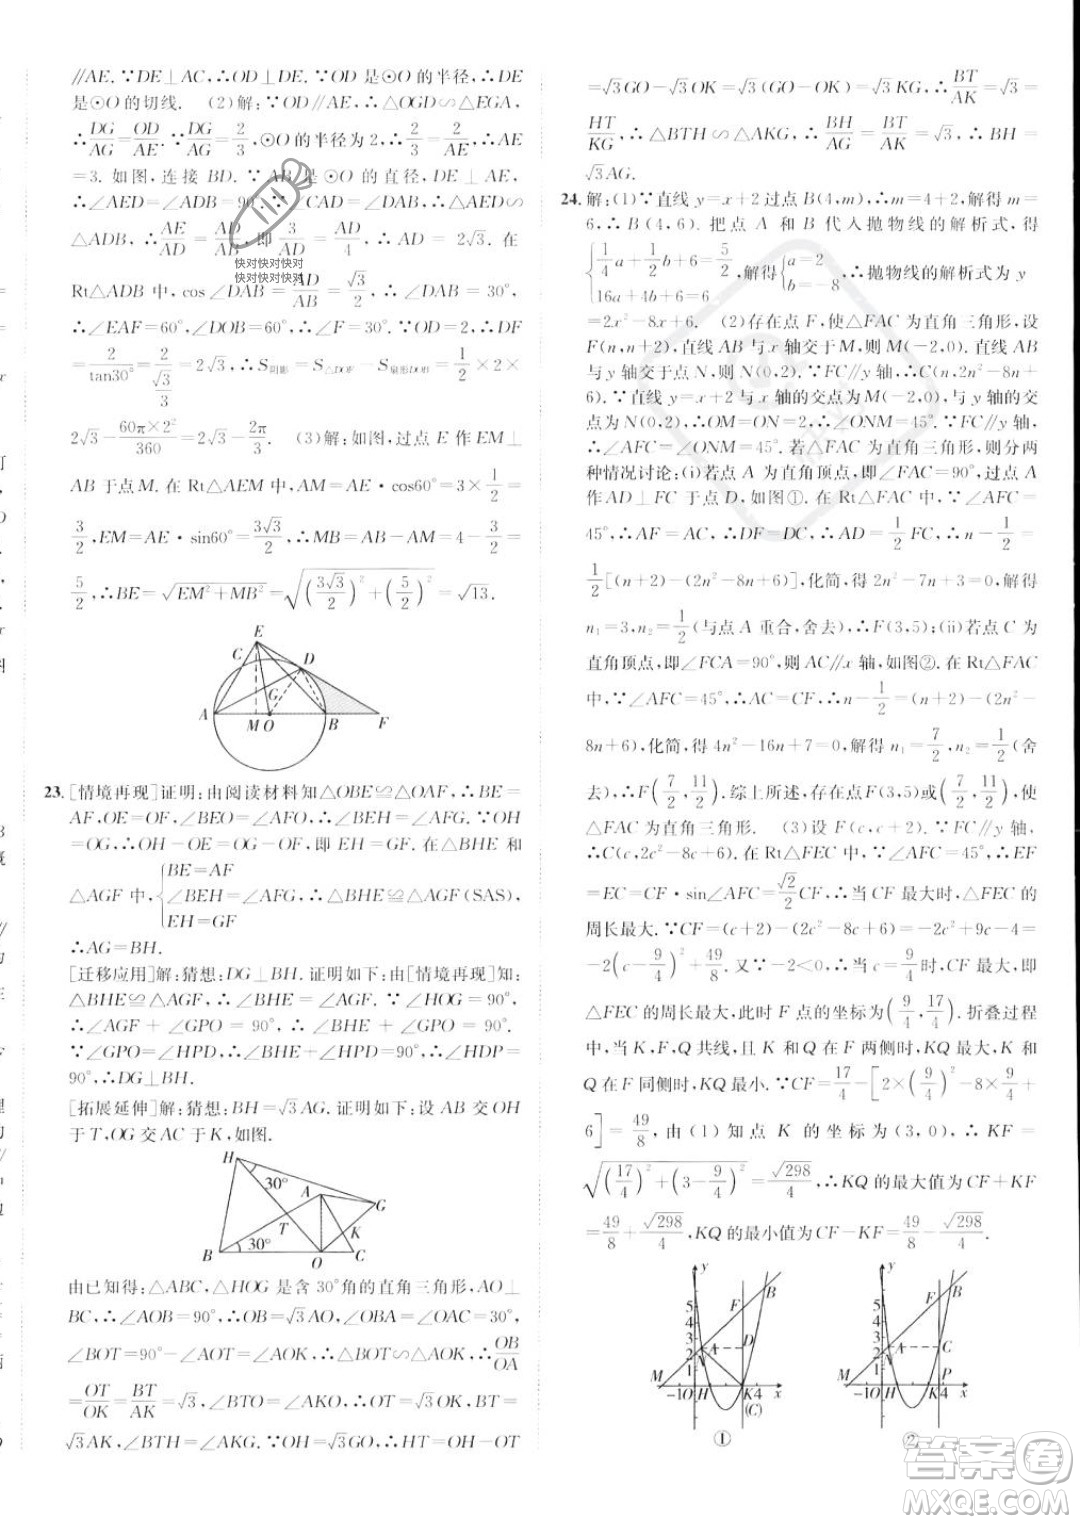 ∥AE. ∵DE⊥AC,∴OD⊥DE. ∵OD 是⊙O 的半径,∴DE
是⊙O 的切线. (2)解:∵OD∥AE,∴△OGD∽△EGA,
∴DG/AG=OD/AE. ∵DG/AG=2/3,⊙O 的半径为 2,∴2/3=2/AE,∴AE
=3. 如图,连接 BD. ∵AD 是⊙O 的直径,DE⊥AC,
∴∠AED=∠ADB=90°. ∵∠CAD=∠DAB,∴△AED∽
△ADB,∴AE/AD=AD/AB,即 3/AD=AD/4,∴AD=2√3. 在
快对快对快对
快对快对快对
Rt△ADB 中,cos∠DAB=AD/AB=√3/2,∴∠DAB=30°,
∴∠EAF=60°,∠DOB=60°,∴∠F=30°. ∵OD=2,∴DF
=2/tan30°=2/(√3/3)=2√3,∴S阴影=S△DOF−S扇形DOB=1/2×2×
2√3−60π×2²/360=2√3−2π/3. (3)解:如图,过点 E 作 EM⊥
AB 于点M. 在 Rt△AEM 中,AM=AE·cos60°=3×1/2=
3/2,EM=AE·sin60°=3√3/2,∴MB=AB−AM=4−3/2=
5/2,∴BE=√(EM²+MB²)=√((3√3/2)²+(5/2)²)=√13.
E
C D
G
A M O B F
23. [情境再现]证明:由阅读材料知△OBE≌△OAF,∴BE=
AF,OE=OF,∠BEO=∠AFO. ∴∠BEH=∠AFG. ∵OH
=OG,∴OH−OE=OG−OF,即 EH=GF. 在△BHE 和
△AGF 中,{BE=AF ∠BEH=∠AFG,∴△BHE≌△AGF(SAS), EH=GF
∴AG=BH.
[迁移应用]解:猜想:DG⊥BH. 证明如下:由[情境再现]知:
△BHE≌△AGF,∴∠BHE=∠AGF. ∵∠HOG=90°,
∴∠AGF+∠GPO=90°,∴∠BHE+∠GPO=90°.
∵∠GPO=∠HPD,∴∠BHE+∠HPD=90°,∴∠HDP=
90°,∴DG⊥BH.
[拓展延伸]解:猜想:BH=√3AG. 证明如下:设 AB 交OH
于 T,OG 交 AC 于 K,如图.
H
30°
A
G
T K
B 30° O C
由已知得:△ABC,△HOG 是含 30°角的直角三角形,AO⊥
BC,∴∠AOB=90°,∴OB=√3AO,∠OBA=∠OAC=30°,
∠BOT=90°−∠AOT=∠AOK,∴△BOT∽△AOK,∴OB/OA
=OT/OK=BT/AK=√3,∠BTO=∠AKO,∴OT=√3OK,BT=
√3AK,∠BTH=∠AKG. ∵OH=√3GO,∴HT=OH−OT
=√3GO−√3OK=√3(GO−OK)=√3KG,∴BT/AK=√3=
HT/KG,∴△BTH∽△AKG,∴BH/AG=BT/AK=√3,∴BH=
√3AG.
24. 解:(1)∵直线 y=x+2 过点 B(4,m),∴m=4+2,解得 m=
6,∴B(4,6). 把点 A 和 B 代入抛物线的解析式,得
{1/4a+1/2b+6=5/2 16a+4b+6=6,解得{a=2 b=−8,∴抛物线的解析式为 y
=2x²−8x+6. (2)存在点 F,使△FAC 为直角三角形,设
F(n,n+2),直线 AB 与 x 轴交于 M,则 M(−2,0),直线 AB
与 y 轴交于点 N,则 N(0,2). ∵FC∥y 轴,∴C(n,2n²−8n+
6),∵直线 y=x+2 与 x 轴的交点为 M(−2,0),与 y 轴的交
点为 N(0,2),∴OM=ON=2,∴∠ONM=45°. ∵FC∥y
轴,∴∠AFC=∠ONM=45°. 若△FAC 为直角三角形,则分两
种情况讨论:(i)若点 A 为直角顶点,即∠FAC=90°,过点 A
作 AD⊥FC 于点 D,如图①. 在 Rt△FAC 中,∵∠AFC=
45°,∴AF=AC,∴DF=DC,∴AD=1/2FC,∴n−1/2=
1/2[(n+2)−(2n²−8n+6)],化简,得 2n²−7n+3=0,解得
n₁=3,n₂=1/2(与点 A 重合,舍去),∴F(3,5);(ii)若点 C 为
直角顶点,即∠FCA=90°,则AC∥x 轴,如图②. 在 Rt△FAC
中,∵∠AFC=45°,∴AC=CF,∴n−1/2=(n+2)−(2n²−
8n+6),化简,得 4n²−16n+7=0,解得 n₁=7/2,n₂=1/2(舍
去),∴F(7/2,11/2).综上所述,存在点F(3,5)或(7/2,11/2),使
△FAC 为直角三角形. (3)设 F(c,c+2). ∵CF∥y 轴,
∴C(c,2c²−8c+6). 在 Rt△FEC 中,∵∠AFC=45°,∴EF
=EC=CF·sin∠AFC=√2/2CF,∴当 CF 最大时,△FEC 的
周长最大. ∵CF=(c+2)−(2c²−8c+6)=−2c²+9c−4=
−2(c−9/4)²+49/8. 又∵−2<0,∴当 c=9/4时,CF 最大,即
△FEC 的周长最大. 此时 F 点的坐标为(9/4,17/4). 折叠过程
中,当 K,F,Q 共线,且 K 和 Q 在 F 两侧时,KQ 最大,K 和
Q 在 F 同侧时,KQ 最小. ∵CF=17/4−[2×(9/4)²−8×9/4+
6]=49/8,由(1)知点 K 的坐标为(3,0),∴KF=
√((17/4)²+(3−9/4)²)=√298/4,∴KQ 的最大值为 CF+KF
=49/8+√298/4,KQ 的最小值为 CF−KF=49/8−√298/4.
y
5
F B
3
2 A D
N
1
M −1 O H K 4 x
(C)
①
y
5
F B
3
2 A C
N
1
M −1 O H K 4 P x
②
答案圈
MXQE.COM